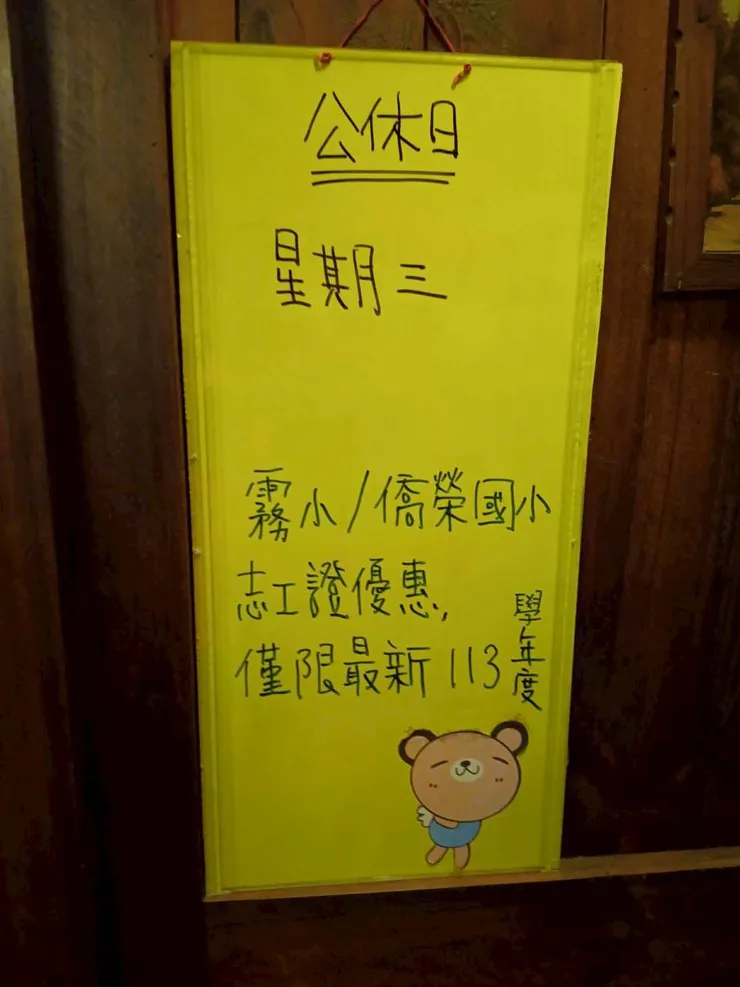 公休日
星期三
霧小/僑榮國小
志工證優惠,
僅限最新113學年度